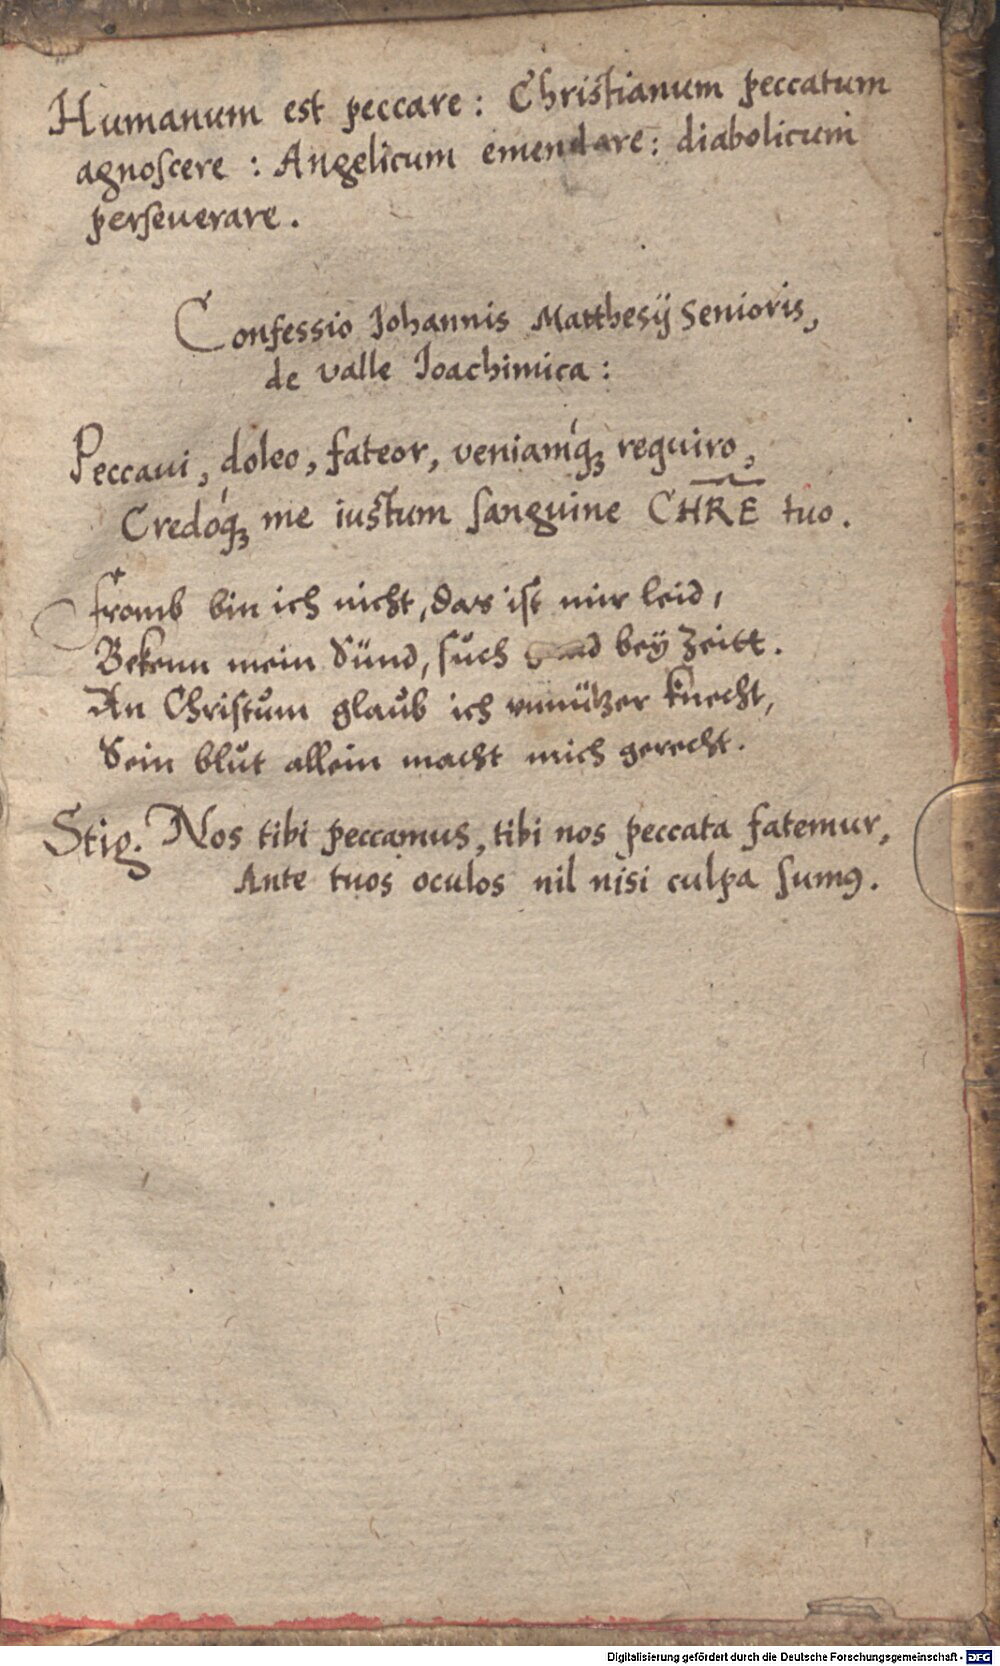 Humanum est peccare: Christianum peccatum
agnoſcere: Angelicum emendare: diabolicum
perſeuerare.
Confessio Iohannis Matthesij Senioris,
de valle Ioachimica:
Peccaui, doleo, fateor, veniamq́ꝫ requiro,
Credóqꝫ me iustum ſanguine CHRE̅ tuo.
Fromb bin ich nicht, das ist mir leid,
Bekenn mein Sünd, ſuͦch bey Zeitt.
An Chriſtum glaub ich vnnützer knecht,
Sein bluͦt allein macht mich gerecht.
Stig. Nos tibi peccamus, tibi nos peccata fatemur,
Ante tuos oculos nil nisi culpa ſumꝰ.
Digitalisierung gefördert durch die Deutsche Forschungsgemeinschaft - DFG